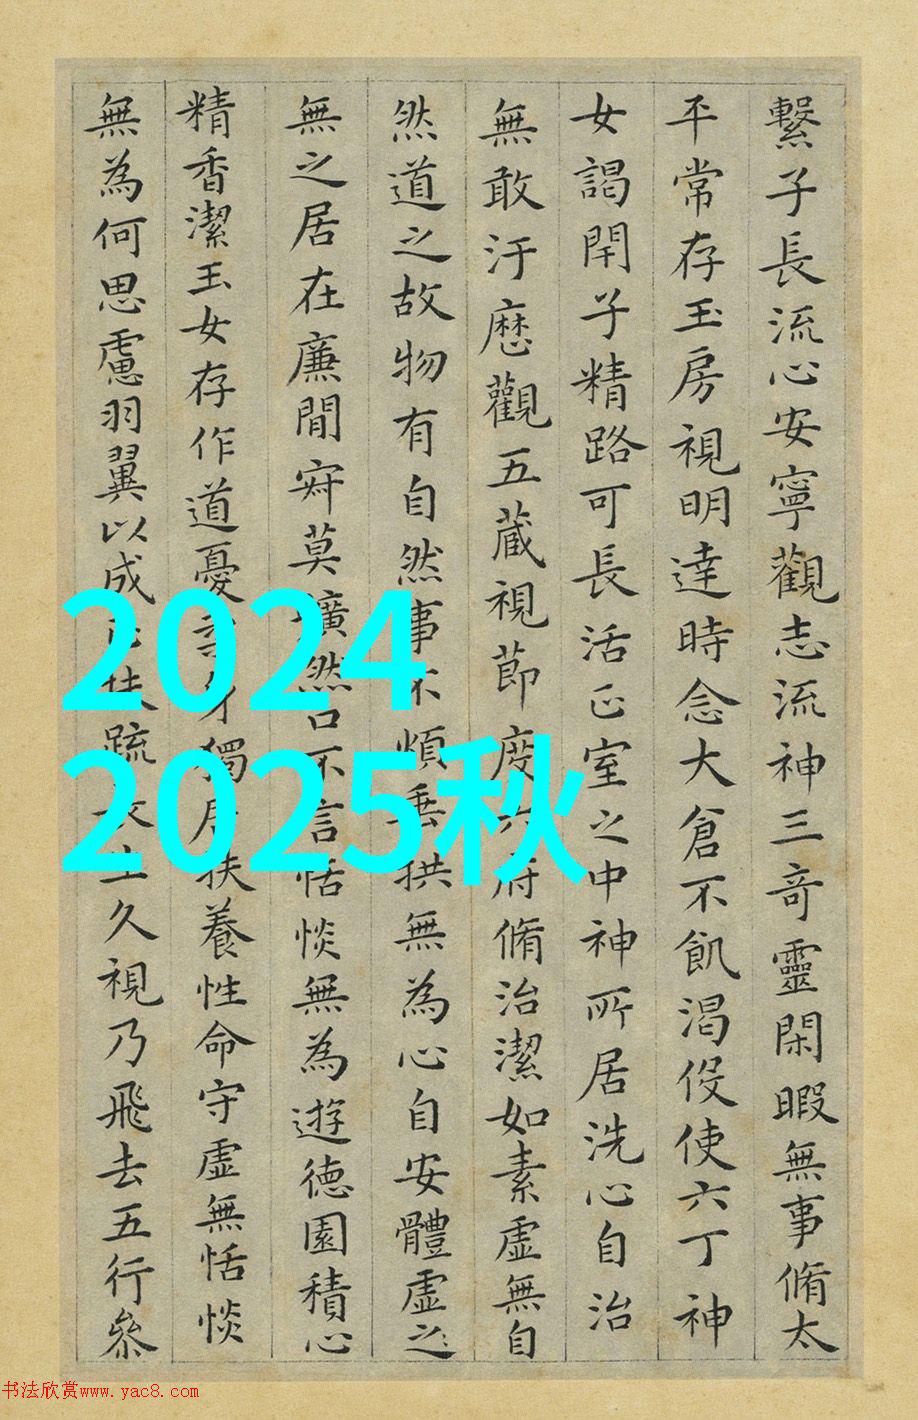 繫子長流心安寧觀志流神三竒靈閑暇無事脩太
平常存玉房視明達時念大倉不飢渴伇使六丁神
女謁閇子精路可長活正室之中神所居洗心自治
無敢汙歷觀五藏視節度六府脩治潔如素虛無自
然道之故物有自然事不煩垂拱無為心自安體虛之
無之居在廉間寂莫曠然口不言恬惔無為遊德園積心
精香潔玉女存作道憂身獨居扶養性命守虛無恬惔
無為何思慮羽翼以成正扶疏久視乃飛去五行參
2024
2025秋
书法欣赏www.yac8.com